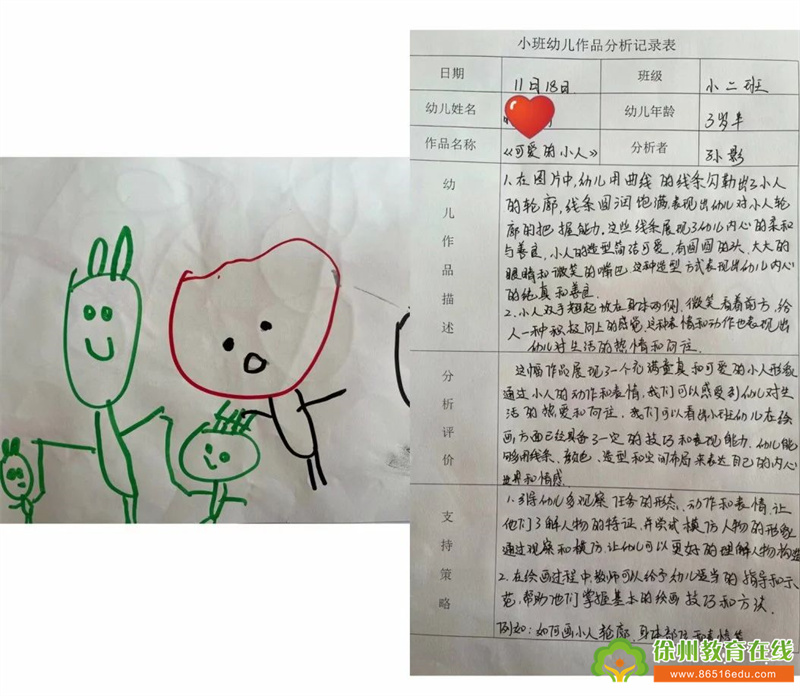 小班幼儿作品分析记录表
日期 11日18日 班级 小二班
幼儿姓名 幼儿年龄 3岁半
作品名称 《可爱的小人》 分析者 孙影
幼儿作品描述
1.在图片中,幼儿用曲线的线条勾勒出了小人
的轮廓,线条圆润饱满,表现出幼儿对小人轮
廓的把握能力,这些线条展现了幼儿内心的柔和
与善良,小人的造型简洁可爱,有圆圆的头,大大的
眼睛和微笑的嘴巴,这种造型方式表现出幼儿内心
的纯真和善良.
2.小人双手翘起放在身体两侧,微笑看着前方,给
人一种积极向上的感觉,这种表情和动作也表现出
幼儿对生活的热情和向往.
分析评价
这幅作品展现了一个充满童真和可爱的小人形象
通过小人的动作和表情,我们可以感受到幼儿对生
活的热爱和向往,我们可以看出小班幼儿在绘
画方面已经具备了一定的技巧和表现能力,幼儿能
够用线条、颜色、造型和空间布局来表达自己的内心
世界和情感.
支持策略
1.引导幼儿多观察任务的形态、动作和表情,让
他们了解人物的特征,并尝试模仿人物的形象
通过观察和模仿,让幼儿可以更好的理解人物构造
2.在绘画过程中,教师可以给予幼儿适当的指导和示
范,帮助他们掌握基本的绘画技巧和方法.
例如:如何画小人轮廓,身体部位和表情等
徐州教育在线
www.86516edu.com